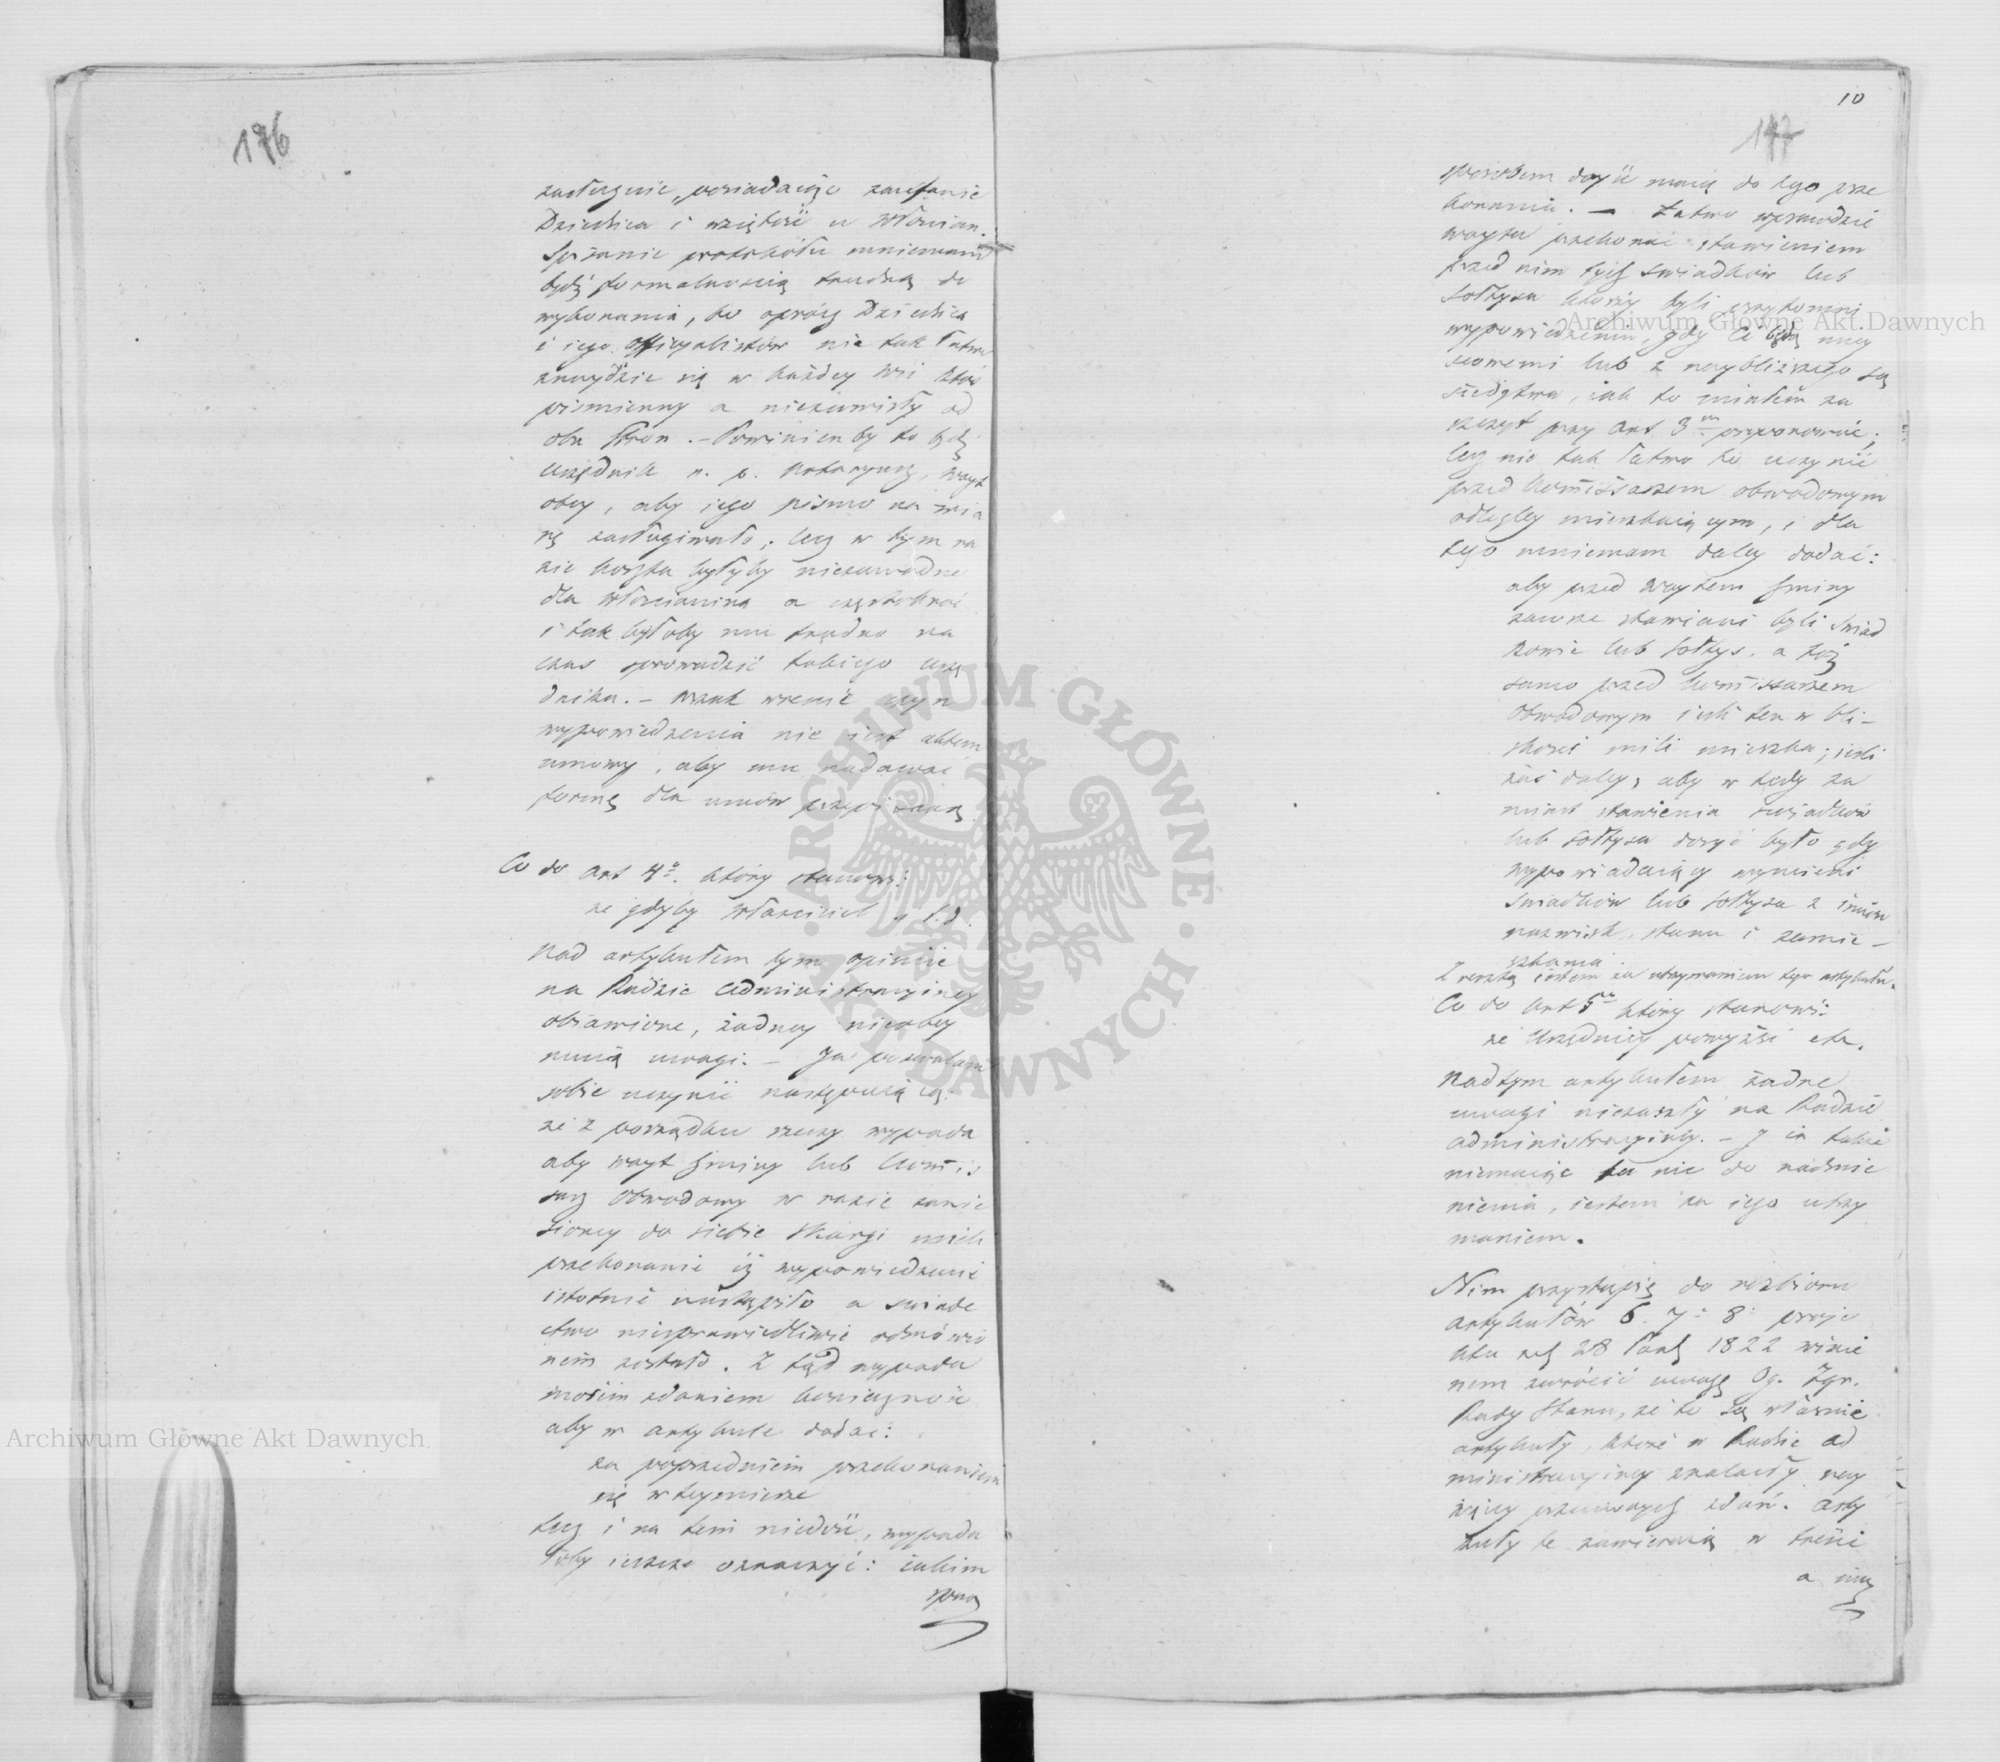 196
zasługuie, posiadaiąc zaufanie
Dziedzica i wziętość u Włościan.
Spisanie protokółu mniemam
bydź formalnością trudną do
wykonania, bo oprócz Dziedzica
i iego officyalistów nie tak łatwo
znaydzie się w każdey wsi ktoś
pismienny a niezawisły od
obu stron. – Powinienby to bydź
Urzędnik n. p. Notaryusz, Woyt
obcy, aby iego pismo na wia
rę zasługiwało; lecz w tym ra
zie koszta byłyby niezawodne
dla Włościanina a częstokroć
i tak byłoby mu trudno na
czas sprowadzić takiego urzę
dnika. – Wszak wreście czyn
wypowiedzenia nie iest aktem
umowy, aby mu nadawać
formę dla umów przepisaną.
Co do art 4º. który stanowi:
że gdyby Właściciel, i t. d.
Nad artykułem tym opinie
na Radzie Administracyiney
obiawione, żadney nieobey
muią uwagi. – Ja pozwalam
sobie uczynić następuiącą:
że z porządku rzeczy wypada
aby woyt gminy lub Kommis
sarz Obwodowy w razie zanie
sioney do siebie skargi mieli
przekonanie iż wypowiedzenie
istotnie nastąpiło a swiade
ctwo niesprawiedliwie odmówio
nem zostało. Z tąd wypada
moiem zdaniem konieczność
aby w artykule dodać:
za poprzedniem przekonaniem
się w teymierze
lecz i na tem niedość, wypada
łoby ieszcze oznaczyć: iakim
spos
10
197
sposobem doyść maią do tego prze
konania. – Łatwo wprawdzie
woyta przekonać stawieniem
przed nim tych swiadków lub
sołtysa którzy byli przytomni
wypowiedzeniu, gdy Ci będą miey
scowemi lub z naybliższego są
siedztwa, iak to miałem za
szczyt przy art 3m proponować;
lecz nie tak łatwo to uczynić
przed kommissarzem obwodowym
odległey mieszkaiącym, i dla
tego mniemam daley dodać:
aby przed woytem gminy
zawsze stawieni byli swiad
kowie lub sołtys, a toż
samo przed kommissarzem
Obwodowym ieśli ten w bli–
skości mili mieszka; ieśli
zaś daley, aby w tedy za
miast stawienia swiadków
lub sołtysa dosyć było gdy
wypowiadaiący wymieni
swiadków lub sołtysa z imion
nazwisk, stanu i zamie–
szkania.
Z resztą iestem za utrzymaniem tego artykułu.
Co do art 5go który stanowi:
że Urzędnicy powyżsi etc.
Nadtym artykułem żadne
uwagi niezaszły na Radzie
administracyiney. – I ia także
niemaiąc tu nic do nadmie
nienia, iestem za iego utrzy
maniem.
Nim przystąpię do rozbioru
artykułów 6. 7: 8: proje
ktu 28 1822 winie
nem zwrócić uwagę Og. Zgr.
Rady Stanu, że to są właśnie
artykuły, które w Radzie ad
ministracyiney znalazły nay
więcey przeciwnych zdań. Arty
kuły te zawieraią w treści
a
Archiwum Główne Akt Dawnych
Archiwum Główne Akt Dawnych
· ARCHIWUM GŁÓWNE ·
AKT DAWNYCH